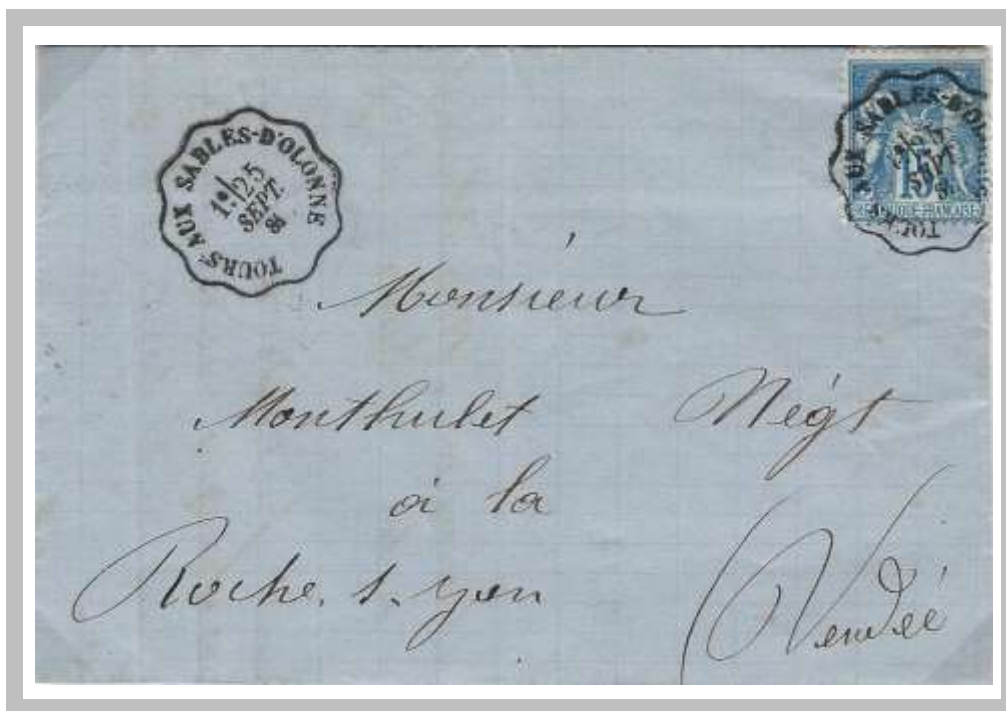 TOURS AUX SABLES-D'OLONNE
1º/ 25
SEPT.
TOURS AUX SABLES-D'OLONNE
25
SEPT
15
REPUBLIQUE FRANÇAISE
Monsieur
Monthulet Négt
à la
Roche. s. yon
(Vendée